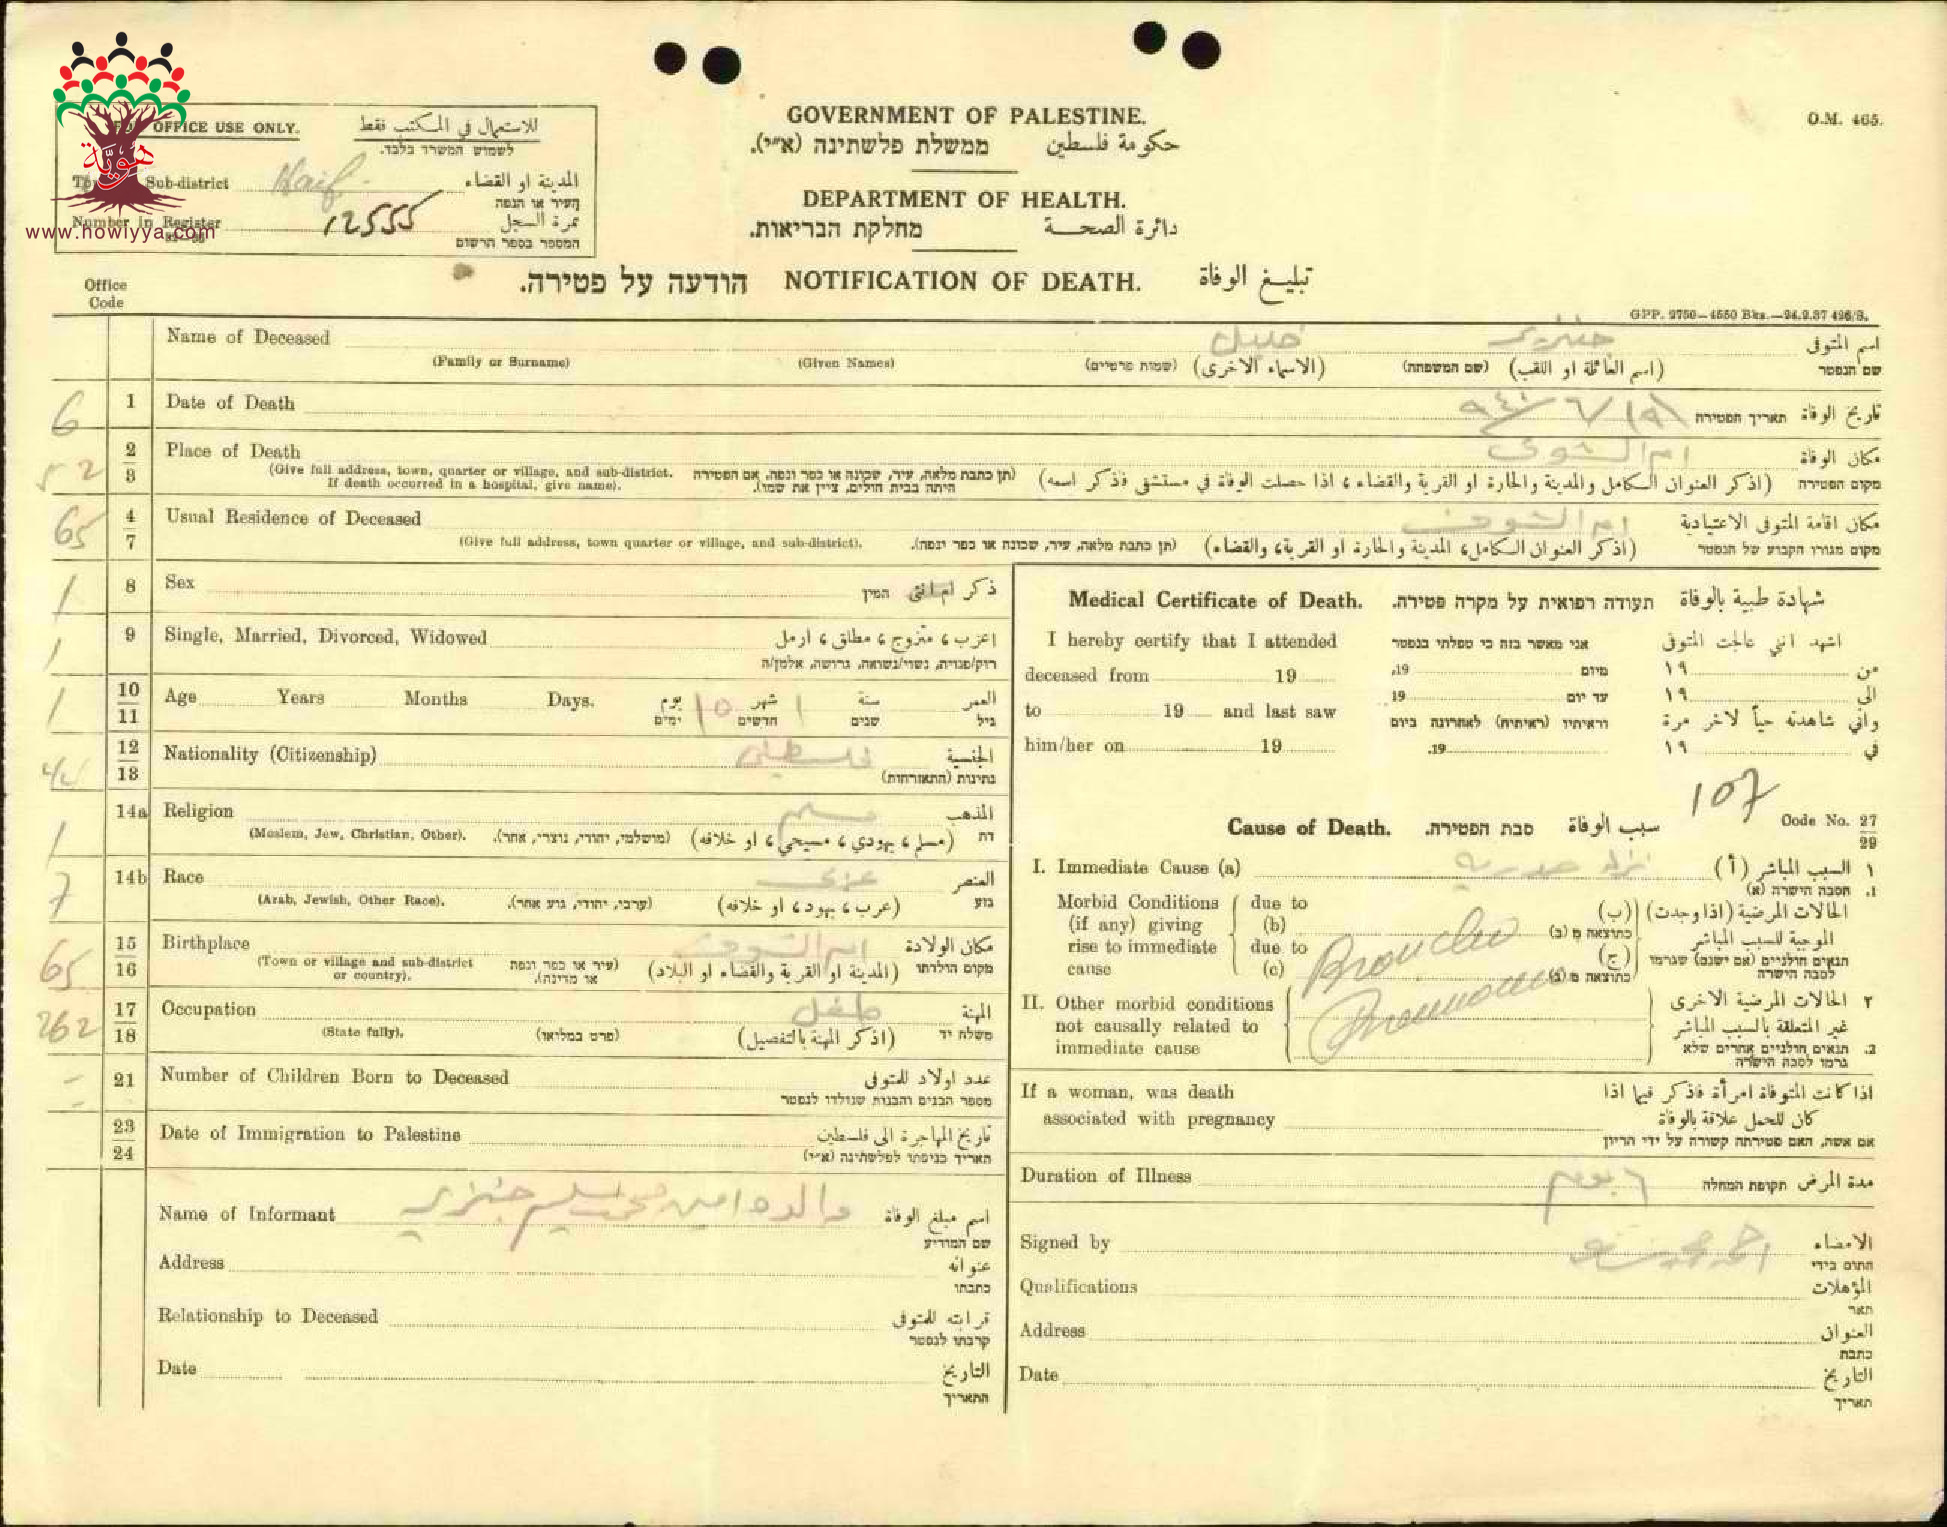 هويّة
www.howiyya.com
OFFICE USE ONLY. للاستعمال في المكتب فقط
לשמוש המשרד בלבד.
Sub-district Haifa المدينة او القضاء
העיר או הנפה
Number in Register 12555 نمرة السجل
המספר בספר הרשום
O.M. 465.
GOVERNMENT OF PALESTINE.
ממשלת פלשתינה (א״י). حكومة فلسطين
DEPARTMENT OF HEALTH.
מחלקת הבריאות. دائرة الصحة
הודעה על פטירה. NOTIFICATION OF DEATH. تبليغ الوفاة
GPP. 2750—4550 Bks.—24.9.37 426/S.
Office
Code
Name of Deceased خليل اسم المتوفى
(Family or Surname) (Given Names) (שמות פרטיים) (الاسماء الاخرى) (שם המשפחה) (اسم العائلة او اللقب) שם הנפטר
6 1 Date of Death תאריך הפטירה تاريخ الوفاة
52 2 Place of Death ام الشوف مكان الوفاة
3 (Give full address, town, quarter or village, and sub-district. If death occurred in a hospital, give name). (תן כתבת מלאה, עיר, שכונה או כפר ונפה, אם הפטירה היתה בבית חולים, ציין את שמו). (اذكر العنوان الكامل والمدينة والحارة او القرية والقضاء، اذا حصلت الوفاة في مستشفى فاذكر اسمه) מקום הפטירה
65 4 Usual Residence of Deceased ام الشوف مكان اقامة المتوفى الاعتيادية
7 (Give full address, town quarter or village, and sub-district). (תן כתבת מלאה, עיר, שכונה או כפר ונפה). (اذكر العنوان الكامل، المدينة والحارة او القرية، والقضاء) מקום מגורו הקבוע של הנפטר
1 8 Sex המין ذكر ام انثى
1 9 Single, Married, Divorced, Widowed اعزب، متزوج، مطلق، ارمل
רוק/פנויה, נשוי/נשואה, גרוש/ה, אלמן/ה
1 10 Age Years Months Days. يوم 10 شهر 1 سنة العمر
11 ימים חדשים שנים גיל
12 Nationality (Citizenship) فلسطيني الجنسية
13 נתינות (התאזרחות)
14a Religion مسلم المذهب
1 (Moslem, Jew, Christian, Other). (מושלמי, יהודי, נוצרי, אחר). (مسلم، يهودي، مسيحي، او خلافه) דת
7 14b Race عربي العنصر
(Arab, Jewish, Other Race). (ערבי, יהודי, גזע אחר). (عرب، يهود، او خلافه) גזע
65 15 Birthplace ام الشوف مكان الولادة
16 (Town or village and sub-district or country). (עיר או כפר ונפה או מדינה). (المدينة او القرية والقضاء او البلاد) מקום הולדתו
262 17 Occupation طفل المهنة
18 (State fully). (פרט במליאו) (اذكر المهنة بالتفصيل) משלח יד
21 Number of Children Born to Deceased عدد اولاد للمتوفى
מספר הבנים והבנות שנולדו לנפטר
23 Date of Immigration to Palestine تاريخ المهاجرة الى فلسطين
24 תאריך כניסתו לפלשתינה (א״י)
Name of Informant والده امين محمد اسم مبلغ الوفاة
שם המודיע
Address عنوانه
כתבתו
Relationship to Deceased قرابته للمتوفى
קרבתו לנפטר
Date التاريخ
התאריך
Medical Certificate of Death. תעודה רפואית על מקרה פטירה. شهادة طبية بالوفاة
I hereby certify that I attended אני מאשר בזה כי טפלתי בנפטר اشهد انني عالجت المتوفى
deceased from 19 19, מיום ١٩ من
to 19 and last saw 19 עד יום ١٩ الى
וראיתיו (ראיתיה) לאחרונה ביום واني شاهدته حياً لاخر مرة
him/her on 19 19. ١٩ في
107
Cause of Death. סבת הפטירה. سبب الوفاة Code No. 27
29
I. Immediate Cause (a) نزلة صدرية (أ) السبب المباشر ١
הסבה הישרה (א) 1.
Morbid Conditions due to الحالات المرضية (اذا وجدت) (ب)
(if any) giving (b) כתוצאה מ (ב) الموجبة للسبب المباشر
rise to immediate due to Broncho (ج) תנאים חולניים (אם ישנם) שגרמו
cause (c) כתוצאה מ (ג) לסבה הישרה
II. Other morbid conditions Pneumonia الحالات المرضية الاخرى ٢
not causally related to غير المتعلقة بالسبب المباشر
immediate cause תנאים חולניים אחרים שלא 2.
גרמו לסבה הישרה
If a woman, was death اذا كانت المتوفاة امرأة فاذكر فيما اذا
associated with pregnancy كان للحمل علاقة بالوفاة
אם אשה, האם פטירתה קשורה על ידי הריון
Duration of Illness ٦ يوم תקופת המחלה مدة المرض
Signed by الامضاء
התום בידי
Qualifications المؤهلات
תאר
Address العنوان
כתבת
Date التاريخ
תאריך